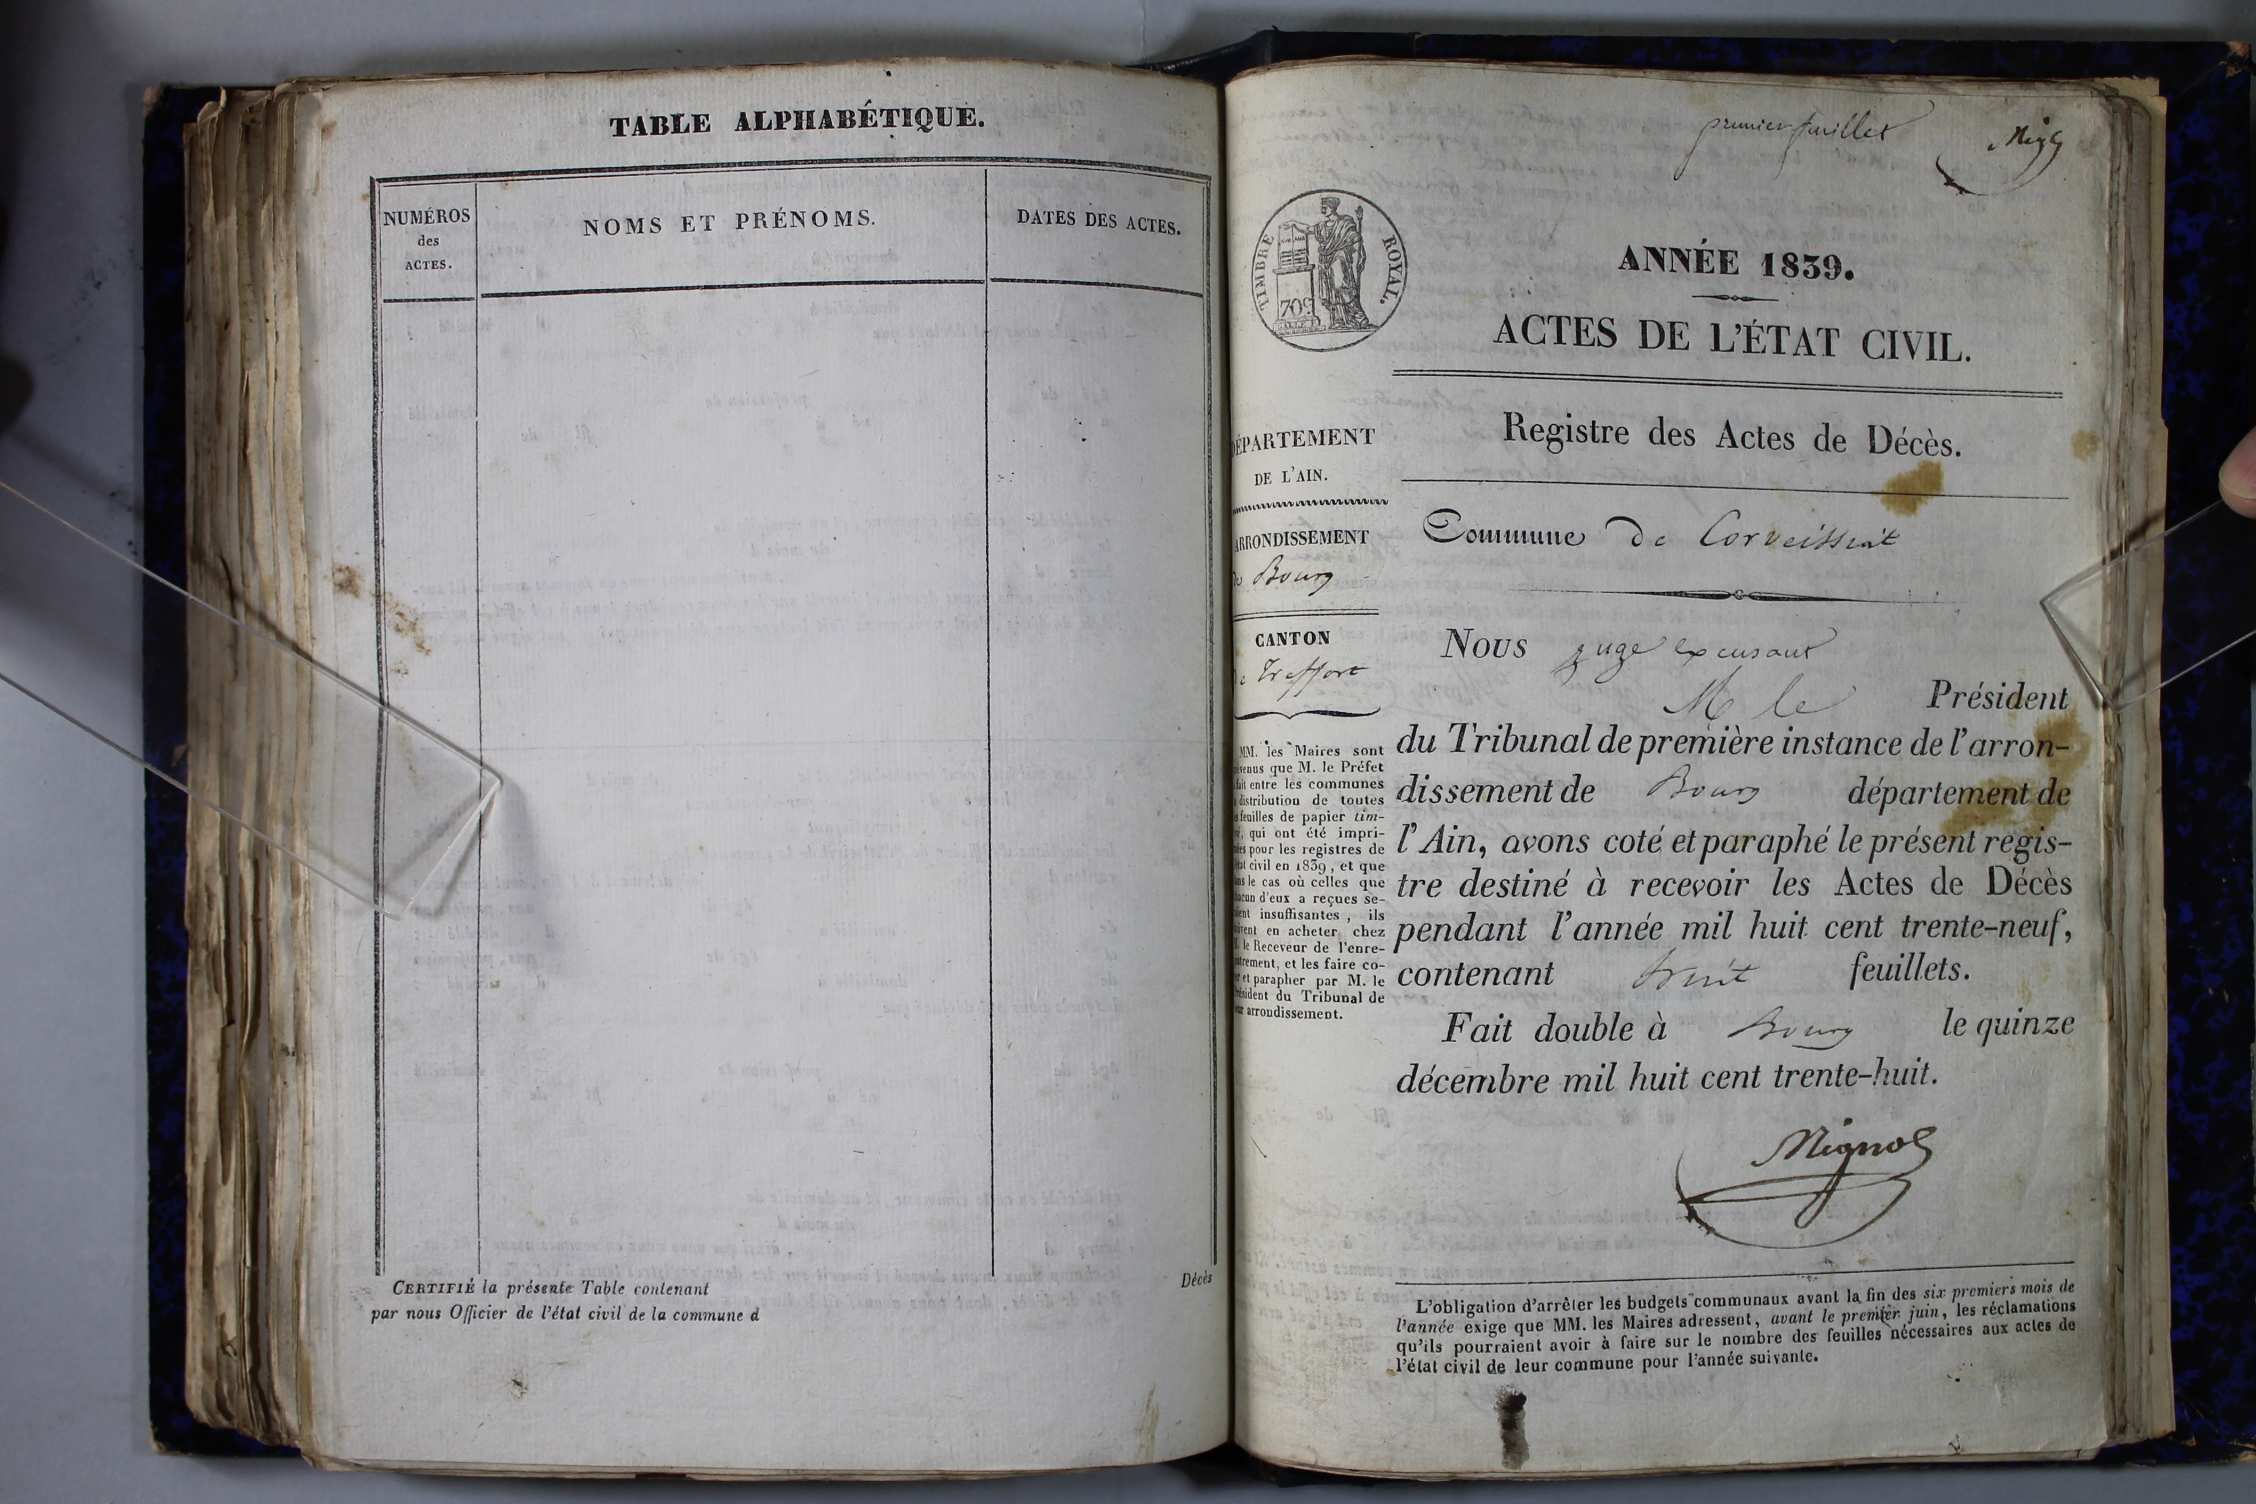 TABLE ALPHABÉTIQUE.
NUMÉROS
des
ACTES.
NOMS ET PRÉNOMS.
DATES DES ACTES.
CERTIFIÉ la présente Table contenant
par nous Officier de l'état civil de la commune d
Décès
premier feuillet
TIMBRE ROYAL.
70c.
ANNÉE 1839.
ACTES DE L'ÉTAT CIVIL.
DÉPARTEMENT
DE L'AIN.
ARRONDISSEMENT
de Bourg
CANTON
de Treffort
MM. les Maires sont
venus que M. le Préfet
fait entre les communes
distribution de toutes
feuilles de papier tim-
qui ont été impri-
pour les registres de
civil en 1839, et que
le cas où celles que
d'eux a reçues se-
insuffisantes, ils
en acheter chez
le Receveur de l'enre-
et les faire co-
et parapher par M. le
Président du Tribunal de
arrondissement.
Registre des Actes de Décès.
Commune de Corveissiat
Nous juge excusant
M le Président
du Tribunal de première instance de l'arron-
dissement de Bourg département de
l'Ain, avons coté et paraphé le présent regis-
tre destiné à recevoir les Actes de Décès
pendant l'année mil huit cent trente-neuf,
contenant huit feuillets.
Fait double à Bourg le quinze
décembre mil huit cent trente-huit.
L'obligation d'arrêter les budgets communaux avant la fin des six premiers mois de
l'année exige que MM. les Maires adressent, avant le premier juin, les réclamations
qu'ils pourraient avoir à faire sur le nombre des feuilles nécessaires aux actes de
l'état civil de leur commune pour l'année suivante.